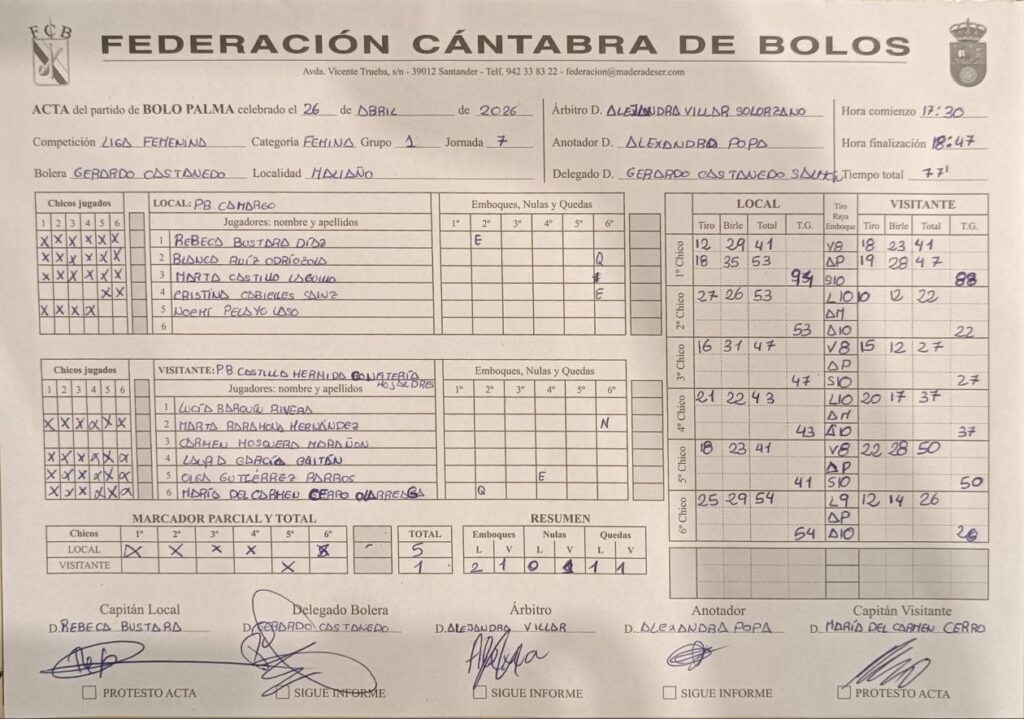 FCB
FEDERACIÓN CÁNTABRA DE BOLOS
Avda. Vicente Trueba, s/n - 39012 Santander - Telf. 942 33 83 22 - federacion@maderadeser.com
ACTA del partido de BOLO PALMA celebrado el 26 de ABRIL de 2026
Competición LIGA FEMENINA Categoría FEMINA Grupo 1 Jornada 7
Bolera GERARDO CASTANEDO Localidad MALIAÑO
Árbitro D. ALEJANDRA VILLAR SOLORZANO
Anotador D. ALEXANDRA POPA
Delegado D. GERARDO CASTANEDO SALMON
Hora comienzo 17:30
Hora finalización 18:47
Tiempo total 77'
Chicos jugados LOCAL: PB CAMARGO Emboques, Nulas y Quedas
1 2 3 4 5 6 Jugadores: nombre y apellidos 1º 2º 3º 4º 5º 6º
X X X X X X 1 REBECA BUSTARA DIAZ E
X X X X X X 2 BLANCA RUIZ ODRIOZOLA Q
X X X X X X 3 MARTA CASTILLO LAGUILLO
X X 4 CRISTINA CABIELLES SAINZ E
X X X X 5 NOEMI PELAYO LASO
6
Chicos jugados VISITANTE: PB CASTILLA HERMIDA CONFITERÍA HOJALDRES Emboques, Nulas y Quedas
1 2 3 4 5 6 Jugadores: nombre y apellidos 1º 2º 3º 4º 5º 6º
1 LUCÍA BARQUÍN RIVERA
X X X X X X 2 MARTA BARAHONA HERNÁNDEZ N
3 CARMEN MOSQUERA MARAÑON
X X X X X X 4 LAURA GARCÍA GAITÁN
X X X X X X 5 OLGA GUTIÉRREZ BARROS E
X X X X X X 6 MARÍA DEL CARMEN CERRO LARREGA Q
LOCAL Tiro Raya Emboque VISITANTE
Tiro Birle Total T.G. Tiro Birle Total T.G.
1º Chico
12 29 41 V8 18 23 41
18 35 53 AP 19 28 47
94 S10 88
2º Chico
27 26 53 L10 10 12 22
AM
53 A10 22
3º Chico
16 31 47 V8 15 12 27
AP
47 S10 27
4º Chico
21 22 43 L10 20 17 37
AM
43 A10 37
5º Chico
18 23 41 V8 22 28 50
AP
41 S10 50
6º Chico
25 29 54 L9 12 14 26
AP
54 A10 26
MARCADOR PARCIAL Y TOTAL
Chicos 1º 2º 3º 4º 5º 6º TOTAL
LOCAL X X X X X - 5
VISITANTE X 1
RESUMEN
Emboques Nulas Quedas
L V L V L V
2 1 0 1 1 1
Capitán Local
D. REBECA BUSTARA
Delegado Bolera
D. GERARDO CASTANEDO
Árbitro
D. ALEJANDRA VILLAR
Anotador
D. ALEXANDRA POPA
Capitán Visitante
D. MARÍA DEL CARMEN CERRO
PROTESTO ACTA
SIGUE INFORME
SIGUE INFORME
SIGUE INFORME
PROTESTO ACTA